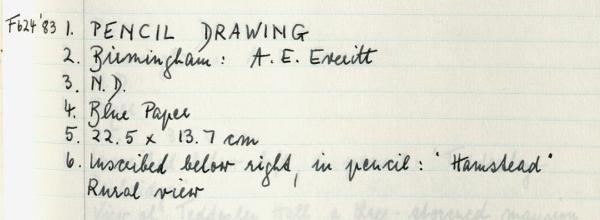 F624'83 1. PENCIL DRAWING
2. Birmingham: A. E. Everitt
3. N.D.
4. Blue Paper
5. 22.5 x 13.7 cm
6. Inscribed below right, in pencil: "Hamstead"
Rural view